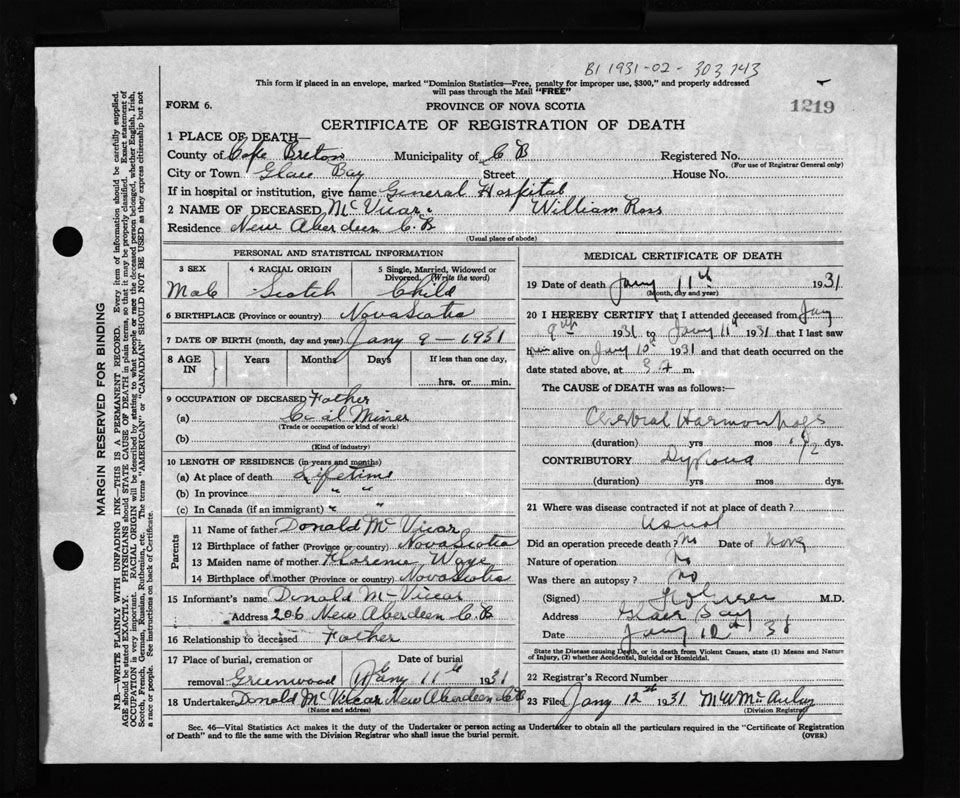 B1 1931-02-303743
This form if placed in an envelope, marked "Dominion Statistics—Free, penalty for improper use, $300," and properly addressed
will pass through the Mail "FREE"
FORM 6.
PROVINCE OF NOVA SCOTIA
1219
CERTIFICATE OF REGISTRATION OF DEATH
1 PLACE OF DEATH—
County of Cape Breton Municipality of C B Registered No.
(For use of Registrar General only)
City or Town Glace Bay Street House No.
If in hospital or institution, give name General Hospital
2 NAME OF DECEASED McVicar William Ross
Residence New Aberdeen C.B
(Usual place of abode)
PERSONAL AND STATISTICAL INFORMATION
3 SEX 4 RACIAL ORIGIN 5 Single, Married, Widowed or Divorced (Write the word)
Male Scotch Child
6 BIRTHPLACE (Province or country) Nova Scotia
7 DATE OF BIRTH (month, day and year) Jany 9 - 1931
8 AGE IN Years Months Days If less than one day, hrs. or min.
9 OCCUPATION OF DECEASED Father
(a) Coal Miner
(Trade or occupation or kind of work)
(b)
(Kind of industry)
10 LENGTH OF RESIDENCE (in years and months)
(a) At place of death Lifetime
(b) In province " "
(c) In Canada (if an immigrant) " "
Parents
11 Name of father Donald McVicar
12 Birthplace of father (Province or country) Nova Scotia
13 Maiden name of mother Florence
14 Birthplace of mother (Province or country) Nova Scotia
15 Informant's name Donald McVicar
Address 206 New Aberdeen C.B
16 Relationship to deceased Father
17 Place of burial, cremation or Date of burial
removal Greenwood Jany 11th 1931
18 Undertaker Donald McVicar New Aberdeen C B
(Name and address)
MEDICAL CERTIFICATE OF DEATH
19 Date of death Jany 11th 1931
(Month, day and year)
20 I HEREBY CERTIFY that I attended deceased from Jany
9th 1931 to Jany 11th 1931 that I last saw
him alive on Jany 10th 1931 and that death occurred on the
date stated above, at 3 A m.
The CAUSE of DEATH was as follows:
Cerebral
(duration) yrs mos 1 1/2 dys.
CONTRIBUTORY
(duration) yrs mos dys.
21 Where was disease contracted if not at place of death?
Did an operation precede death? No Date of
Nature of operation No
Was there an autopsy? No
(Signed) M.D.
Address Glace Bay
Date Jany 12th 31
State the Disease causing Death, or in death from Violent Causes, state (1) Means and Nature
of Injury, (2) whether Accidental, Suicidal or Homicidal.
22 Registrar's Record Number
23 Filed Jany 12st 1931 M W McAulay
(Division Registrar)
Sec. 46—Vital Statistics Act makes it the duty of the Undertaker or person acting as Undertaker to obtain all the particulars required in the "Certificate of Registration
of Death" and to file the same with the Division Registrar who shall issue the burial permit. (OVER)
MARGIN RESERVED FOR BINDING
N.B.—WRITE PLAINLY WITH UNFADING INK—THIS IS A PERMANENT RECORD. Every item of information should be carefully supplied.
AGE should be stated EXACTLY. PHYSICIANS should STATE CAUSE OF DEATH in plain terms, so that it may be properly classified. Exact statement of
OCCUPATION is very important. RACIAL ORIGIN will be described by stating to what people or race the deceased person belonged, whether English, Irish,
Scotch, French, German, Russian, Ruthenian, etc. The terms "AMERICAN" or "CANADIAN" SHOULD NOT BE USED as they express citizenship but not
a race or people. See instructions on back of Certificate.